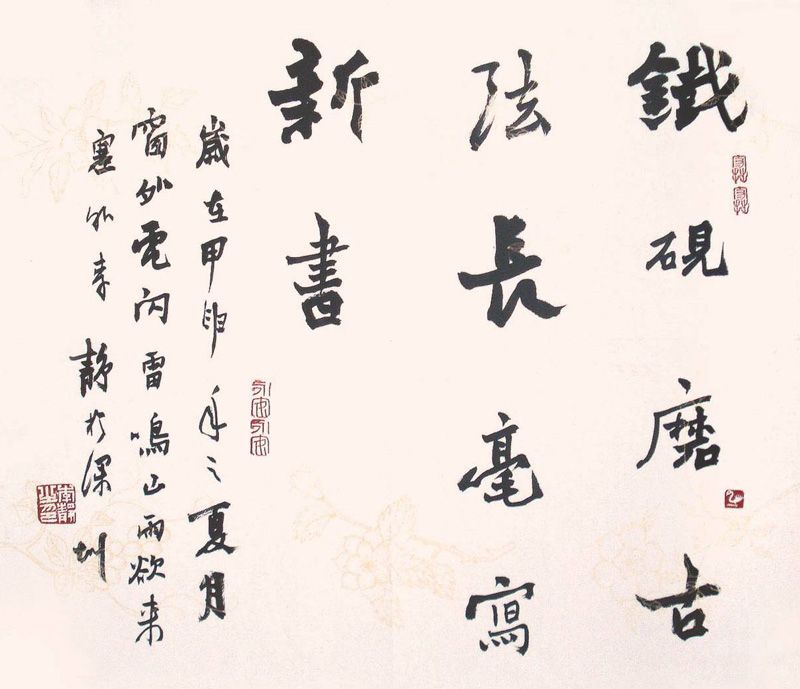 鐵硯磨古
法長毫寫
新書
歲在甲申年之夏月
窗外電闪雷鳴山雨欲来
塞外李静於深圳